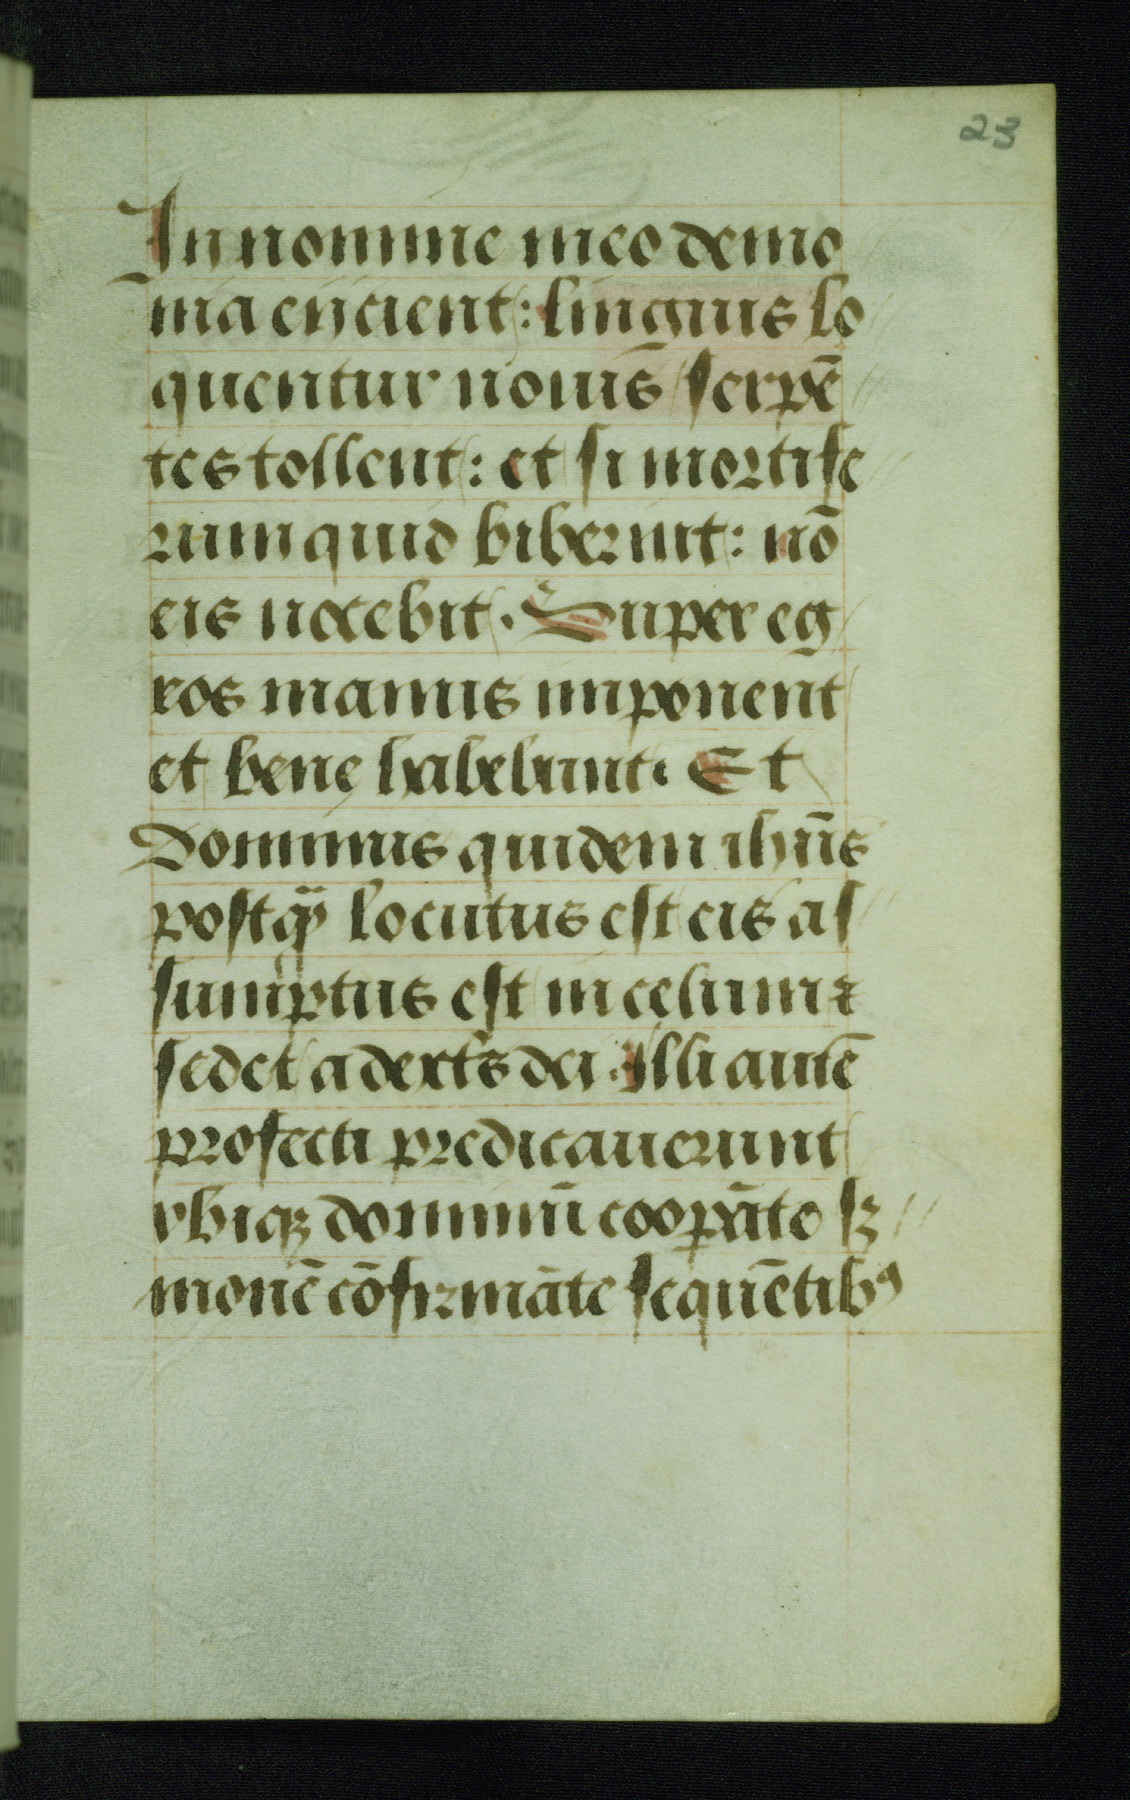 23
In nomine meo demo
nia eiicient: linguis lo
quentur nouis̄ serpē
tes tollent: et si mortife
rum quid biberint: nō
eis nocebit. Super eg
ros manus imponent
et bene habebunt. Et
Dominus quidem ihūs
postq̃ locutus est eis as
sumptus est in celum ⁊
sedet a dextͬs dei. Illi autē
profecti predicauerunt
vbiqꝫ dominū cooperāte sꝫ
monē cōfirmāte sequētibꝰ